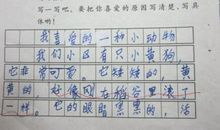 写一写吧。要把你喜爱的原因写清楚、写具
体哟！
我喜爱的一种小动物
我们小区有只小黄狗，
它非常可爱。它矮矮的，黄
黄的，好像刚在稻谷里滚了
一样。它的眼睛黑黑的，活